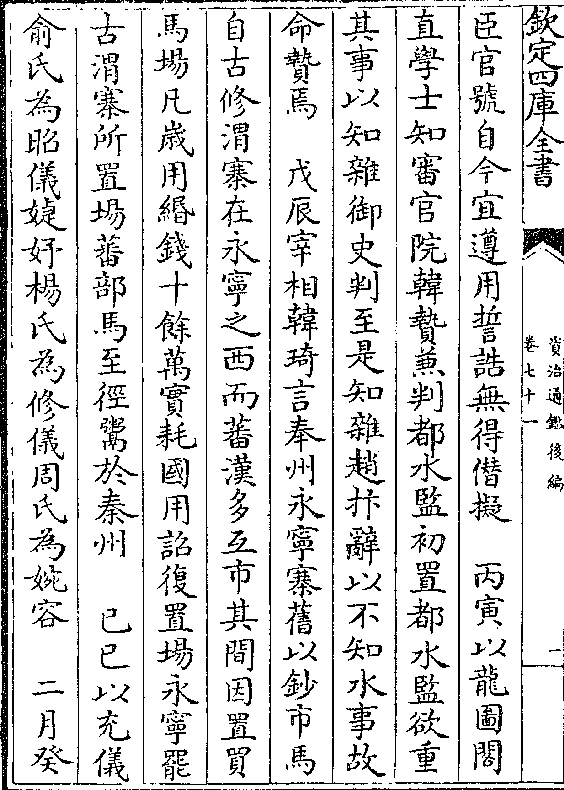 欽定四庫全書
資治通鑑後編
卷七十一
一
臣官號自今宜遵用誓誥無得僭擬　丙寅以龍圖閣
直學士知審官院韓贄兼判都水監初置都水監欲重
其事以知雜御史判至是知雜趙抃辭以不知水事故
命贄焉　戊辰宰相韓琦言奉州永寧寨舊以鈔市馬
自古修渭寨在永寧之西而蕃漢多互市其間因置買
馬場凡歲用緡錢十餘萬實耗國用詔復置場永寧罷
古渭寨所置場蕃部馬至徑鬻於秦州　已巳以充儀
俞氏為昭儀婕妤楊氏為修儀周氏為婉容　二月癸